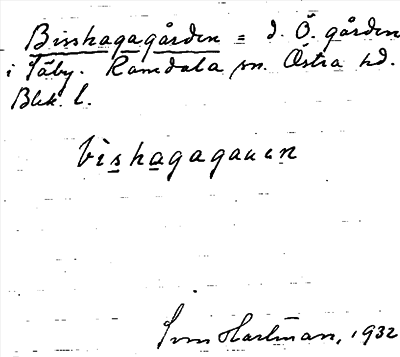 Bisshagagården = d. Ö. gården
i Täby. Ramdala sn. Östra hd.
Blek. l.
bishagagauen
Sven Hartman, 1932